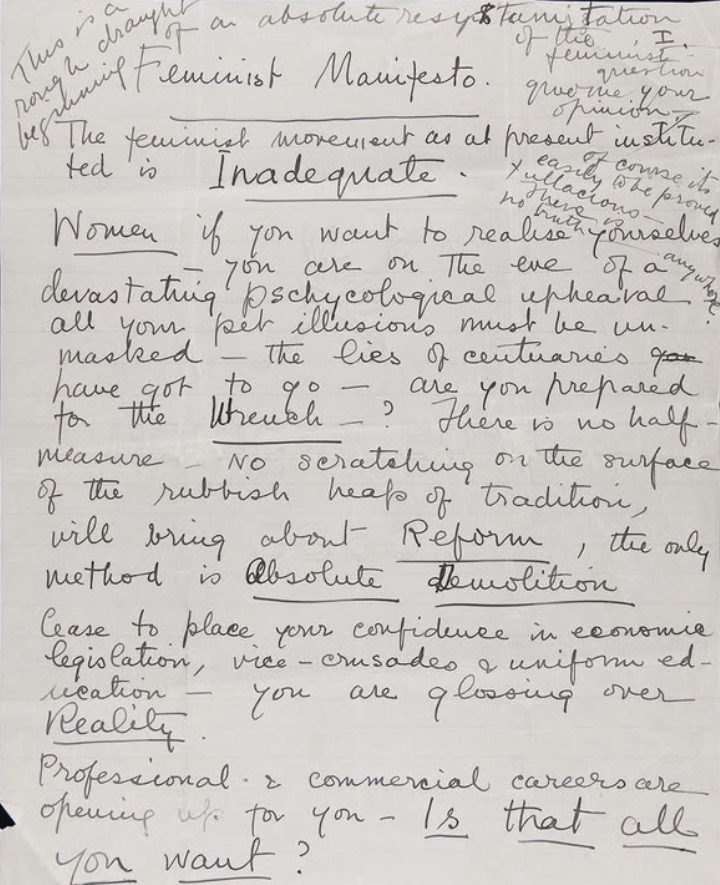 This is a
rough draught
beginning
of an absolute resystemitation
of the
feminist
question
give me your
opinion —
I.
Feminist Manifesto.
The feminist movement as at present institu-
ted is Inadequate.
of course its
easily to be proved
fullacious —
There is
no truth —
anywhere?
Women if you want to realise yourselves
— you are on the eve of a
devastating pschycological upheaval —
all your pet illusions must be un-
masked — the lies of centuaries
have got to go — are you prepared
for the Wrench — ? There is no half-
measure — NO scratching on the surface
of the rubbish heap of tradition,
will bring about Reform, the only
method is Absolute Demolition
Cease to place your confidence in economic
legislation, vice-crusades & uniform ed-
ucation — you are glossing over
Reality.
Professional & commercial careers are
opening up for you — Is that all
you want?